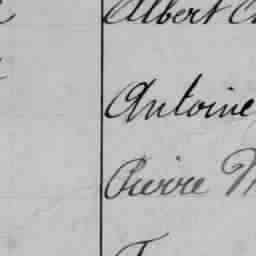 Albert
Antoine
Pierre